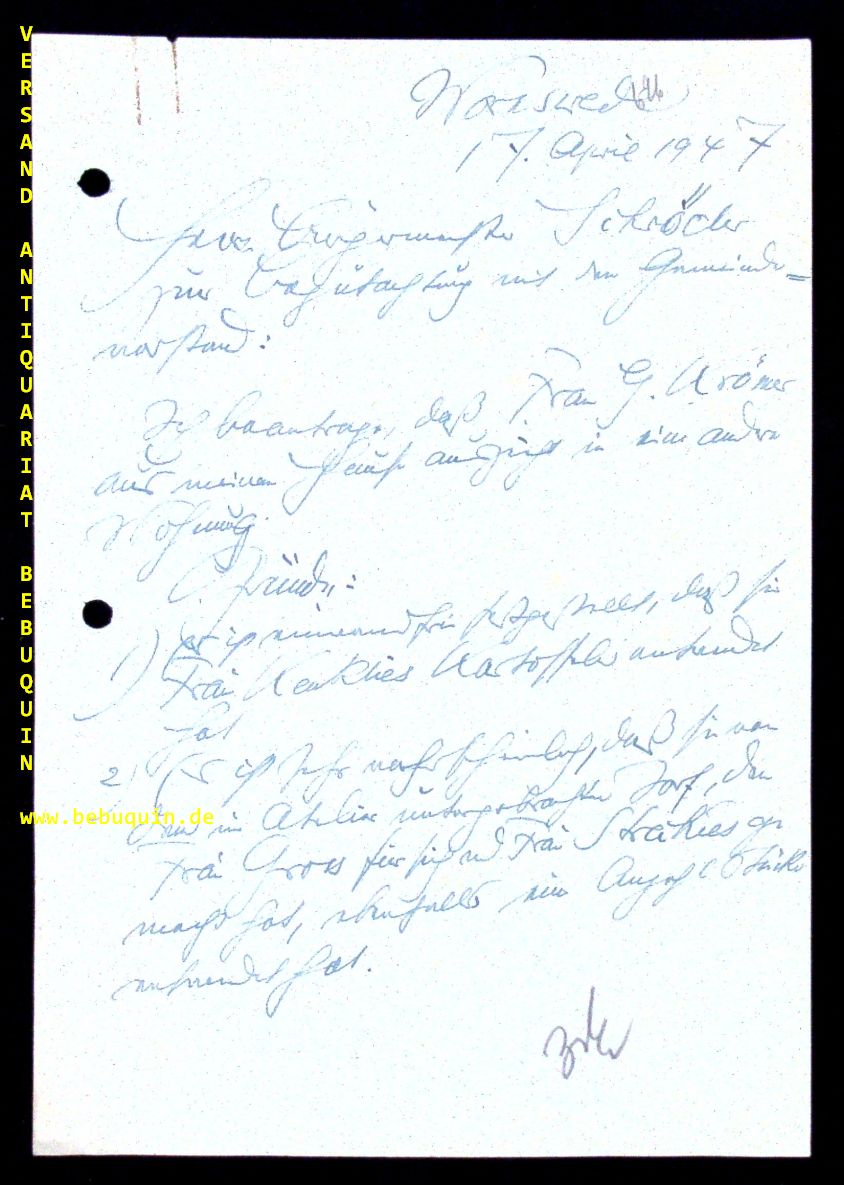 VERSAND ANTIQUARIAT BEBUQUIN
www.bebuquin.de
Worpswede
17. April 1947
Herrn Bürgermeister Schröder
zur Begutachtung mit dem Gemeinde=
vorstand:
Ich beantrage, daß Frau G. Krömer
aus meinem Hause auszieht in eine andere
Wohnung.
Gründe:
1) Es ist einwandfrei festgestellt, daß sie
Frau Kartoffeln entwendet
hat
2) Es ist sehr wahrscheinlich, daß sie von
dem im Atelier untergebrachten Torf, den
Frau Gross für sich und Frau ge
macht hat, ebenfalls eine Anzahl Stücke
entwendet hat.